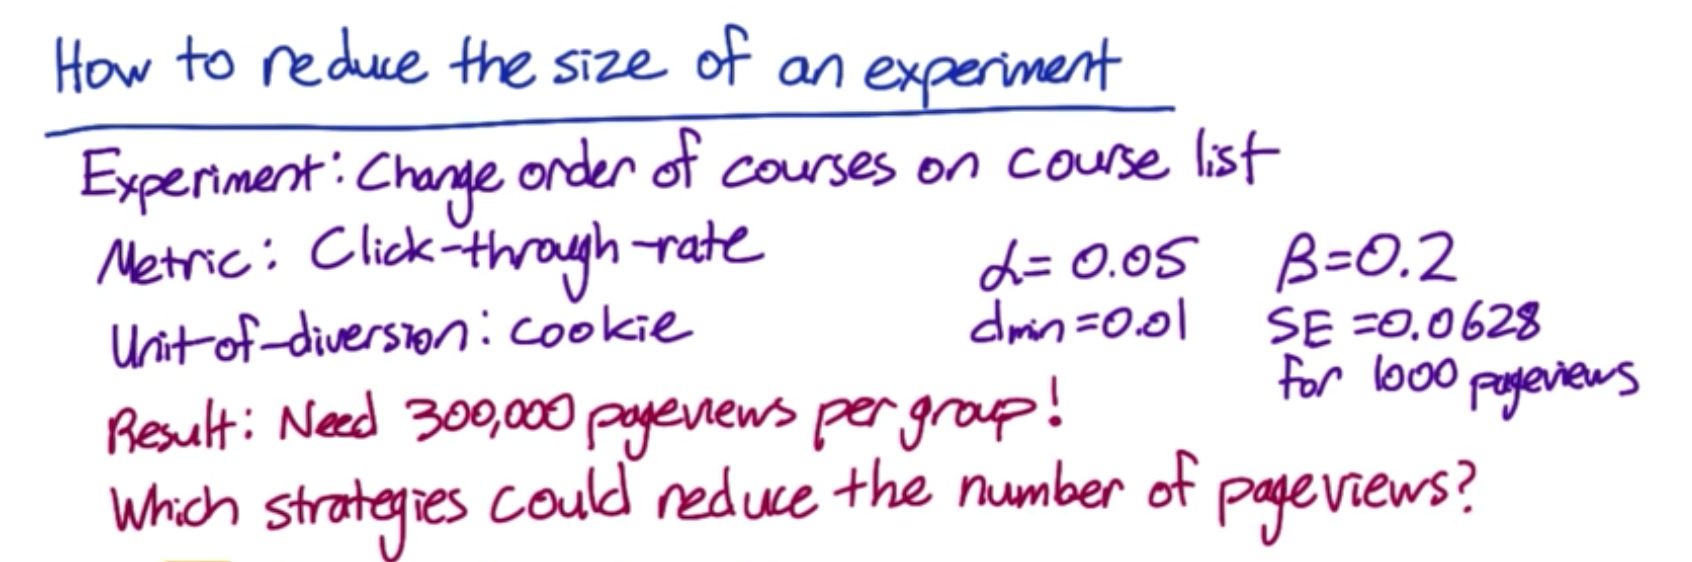 How to reduce the size of an experiment
Experiment: Change order of courses on course list
Metric: Click-through-rate
α = 0.05 β=0.2
Unit-of-diversion: cookie
dmin =0.01 SE =0.0628
for 1000 pageviews
Result: Need 300,000 pageviews per group!
Which strategies could reduce the number of pageviews?